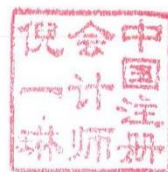 中国注册
会计师
倪一琳